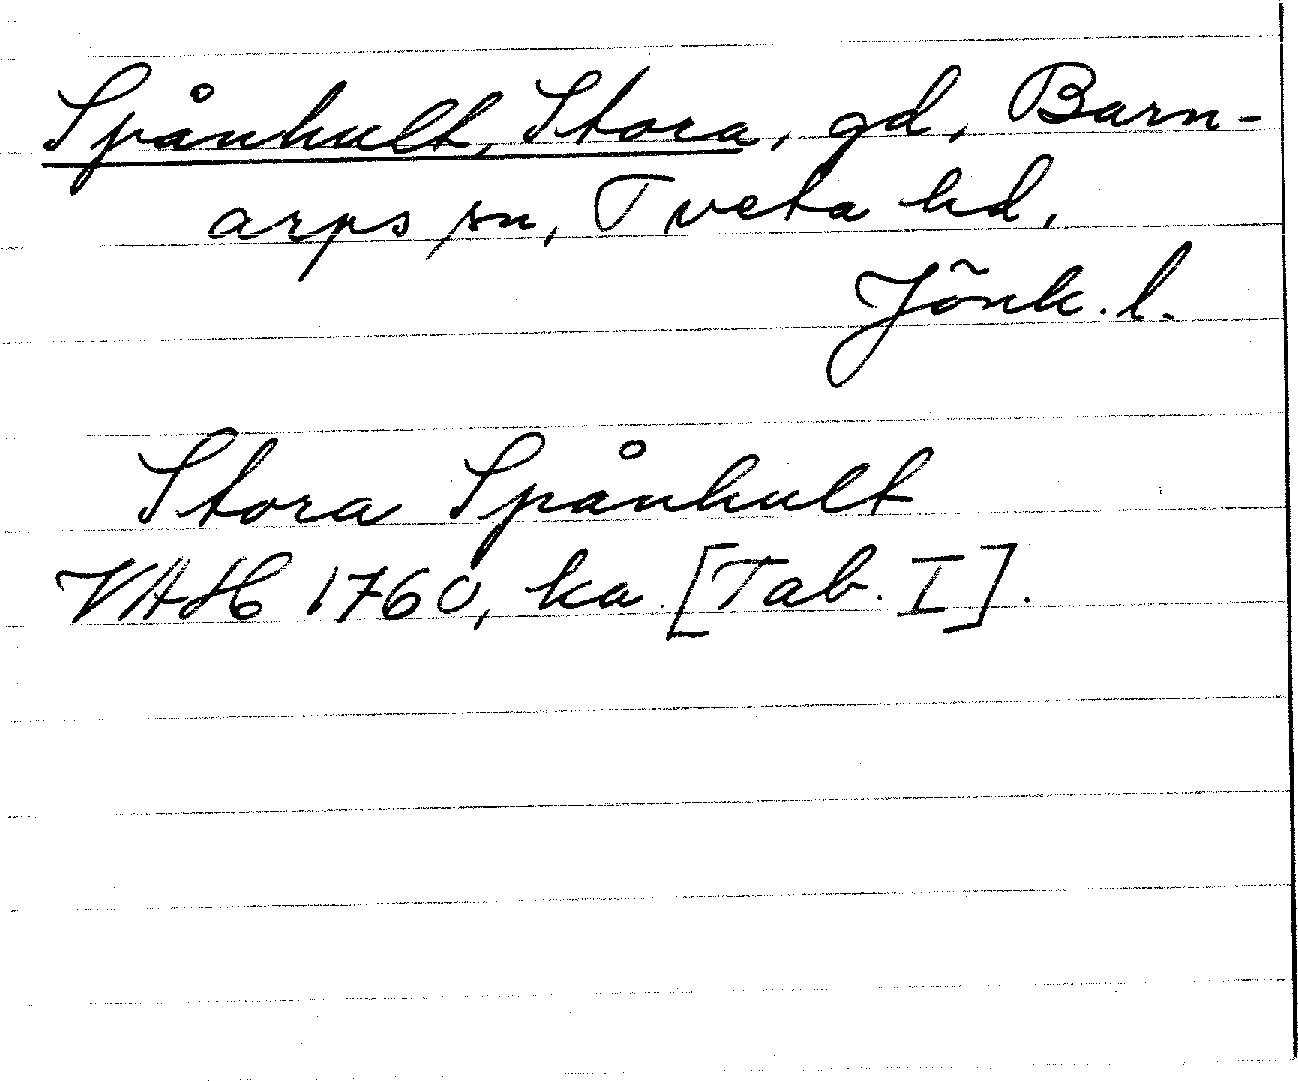 Spånhult, Stora, gd, Barn-
arps sn, Tveta hd,
Jönk. l.
Stora Spånhult
VAH 1760, ka [Tab. I].